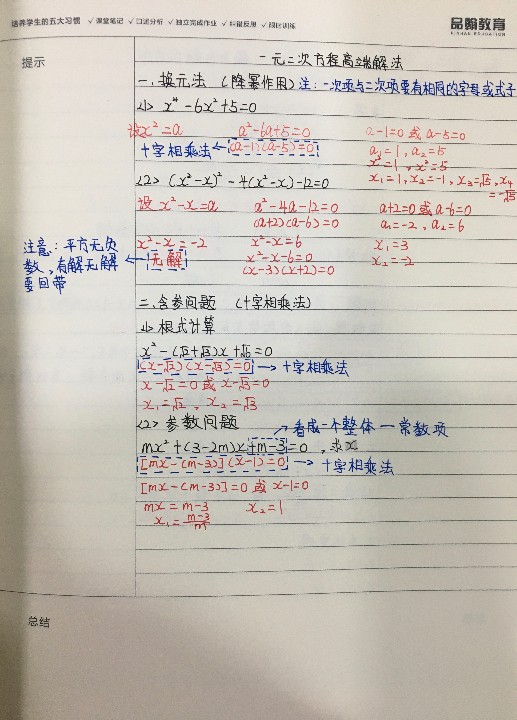 培养学生的五大习惯 √课堂笔记 √口述分析 √独立完成作业 √纠错反思 √限时训练
品翰教育
PINHAN EDUCATION
提示
一元二次方程高端解法
一、换元法（降幂作用）注：一次项与二次项要有相同的字母或式子
(1) x⁴-6x²+5=0
设x²=a a²-6a+5=0 a-1=0 或 a-5=0
十字相乘法 (a-1)(a-5)=0 a₁=1, a₂=5
x²=1, x²=5
(2) (x²-x)²-4(x²-x)-12=0 x₁=1, x₂=-1, x₃=√5, x₄=-√5
设 x²-x=a a²-4a-12=0 a+2=0 或 a-6=0
(a+2)(a-6)=0 a₁=-2, a₂=6
x²-x=-2 x²-x=6 x₁=3
无解 x²-x-6=0 x₂=-2
(x-3)(x+2)=0
注意：平方无负
数，有解无解
要回带
二、含参问题 （十字相乘法）
(1) 根式计算
x²-(√2+√3)x+√6=0
(x-√2)(x-√3)=0 十字相乘法
x-√2=0 或 x-√3=0
x₁=√2, x₂=√3
(2) 参数问题 看成一个整体一常数项
mx²+(3-2m)x+m-3=0, 求x
[mx-(m-3)](x-1)=0 十字相乘法
[mx-(m-3)]=0 或 x-1=0
mx=m-3 x₂=1
x₁=(m-3)/m
总结